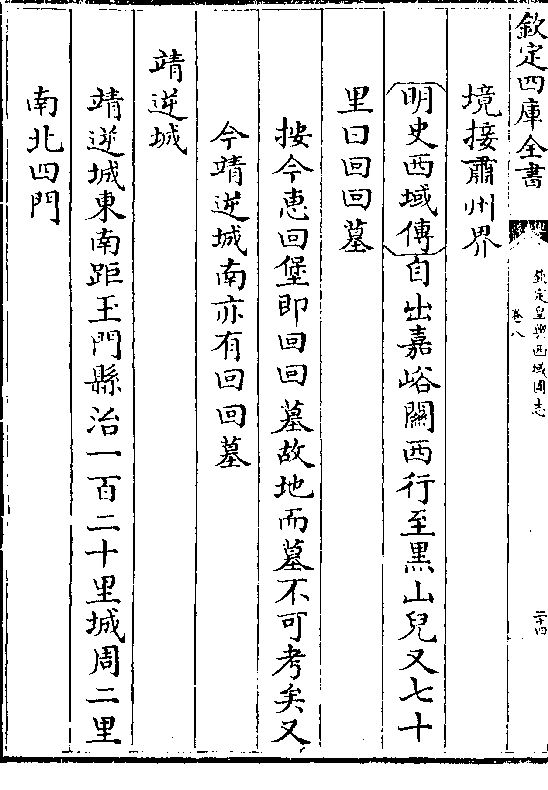 欽定四庫全書
欽定皇輿西域圖志
卷八
二十四
境接肅州界
明史西域傳自出嘉峪關西行至黑山兒又七十
里曰回回墓
按今惠回堡即回回墓故地而墓不可考矣又
今靖逆城南亦有回回墓
靖逆城
靖逆城東南距玉門縣治一百二十里城周二里
南北四門